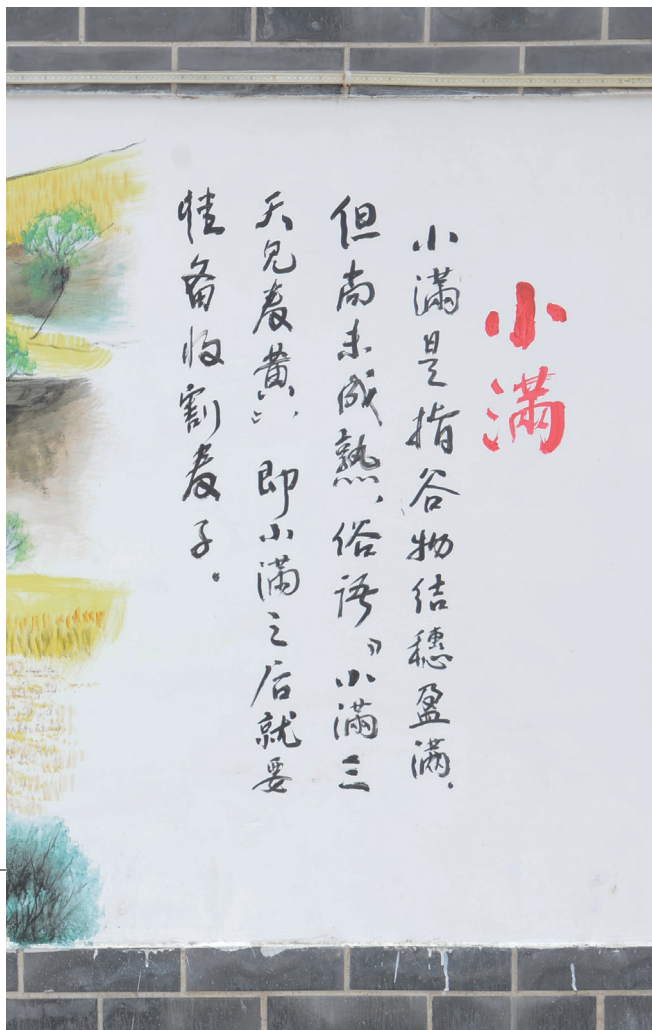 小满
小满是指谷物结穗盈满，
但尚未成熟，俗语“小满三
天见麦黄”，即小满之后就要
准备收割麦子。